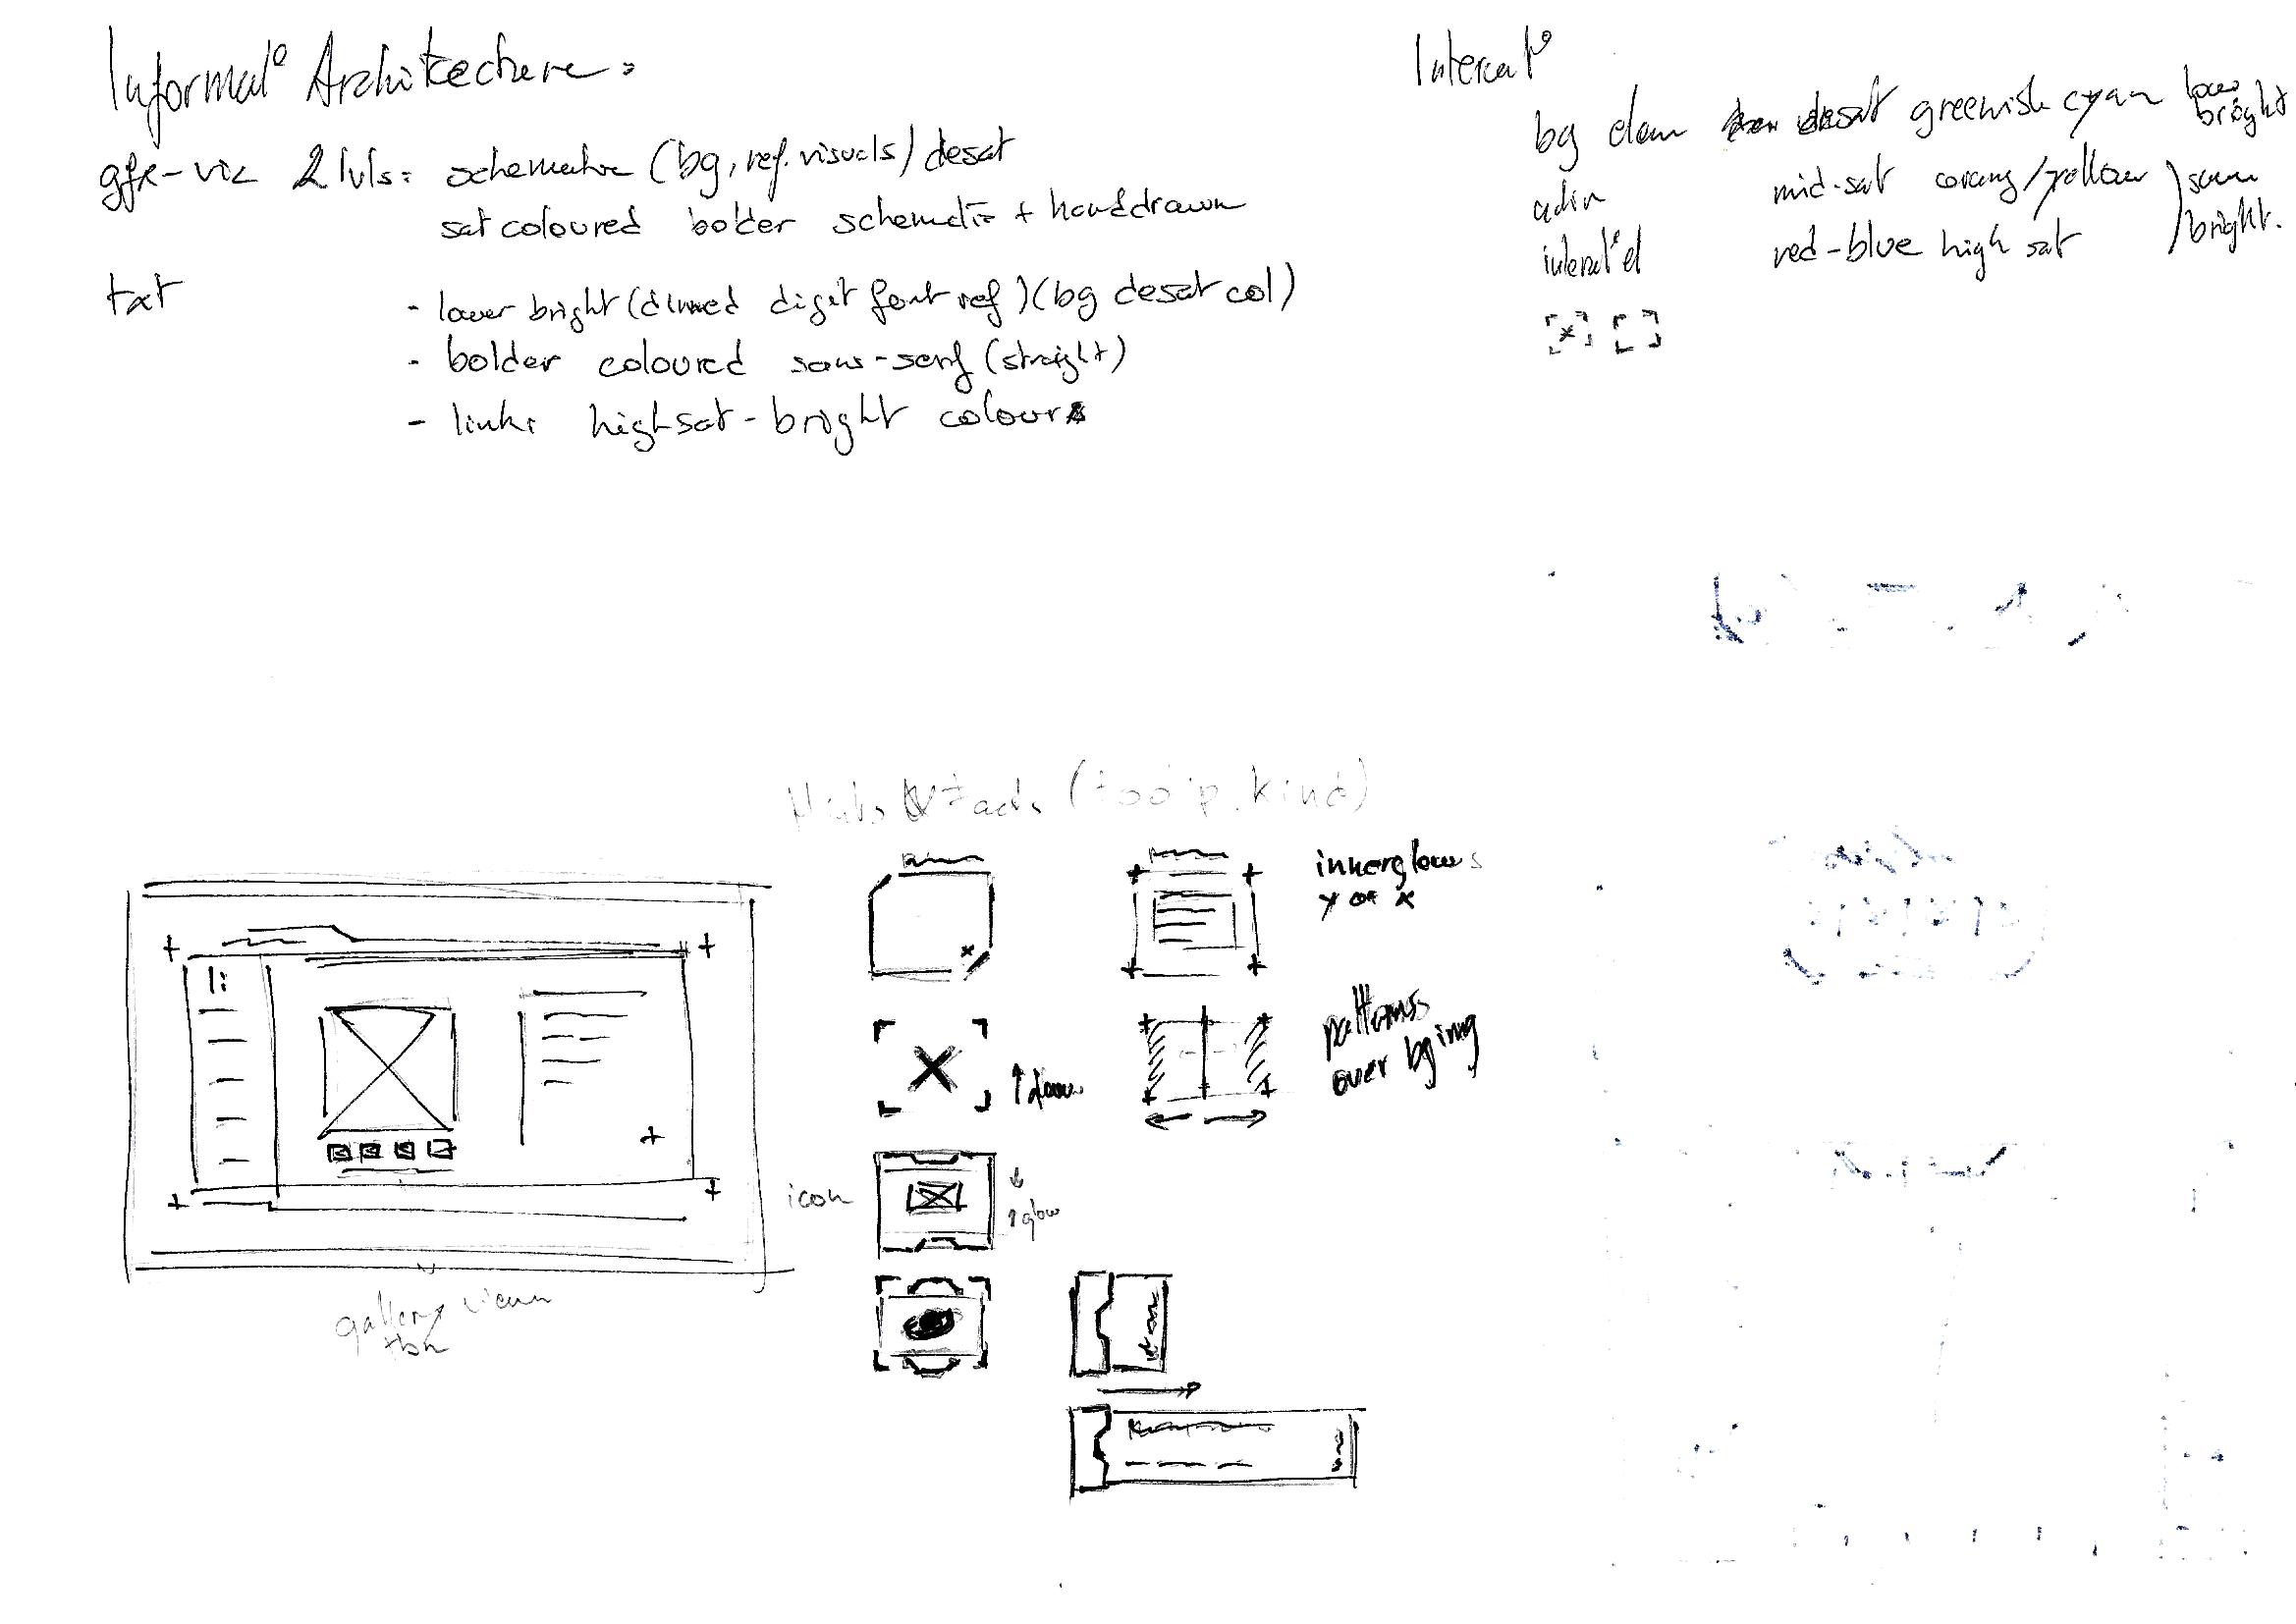 Informat° Architecture:
gfx-vis 2 lvls: schematic (bg, ref. visuals) desat
sat coloured bolder schematic + handdrawn
txt
- lower bright (dimmed digit font ref) (bg desat col)
- bolder coloured sans-serif (straight)
- links highsat-bright colours
Interact°
bg elem desat greenish cyan low bright
mid-sat orange/yellow
interact° el red-blue high sat
same bright.
(tooltip kind)
innerglows
y or x
patterns
over bg img
icon
↑ glow
gallery view